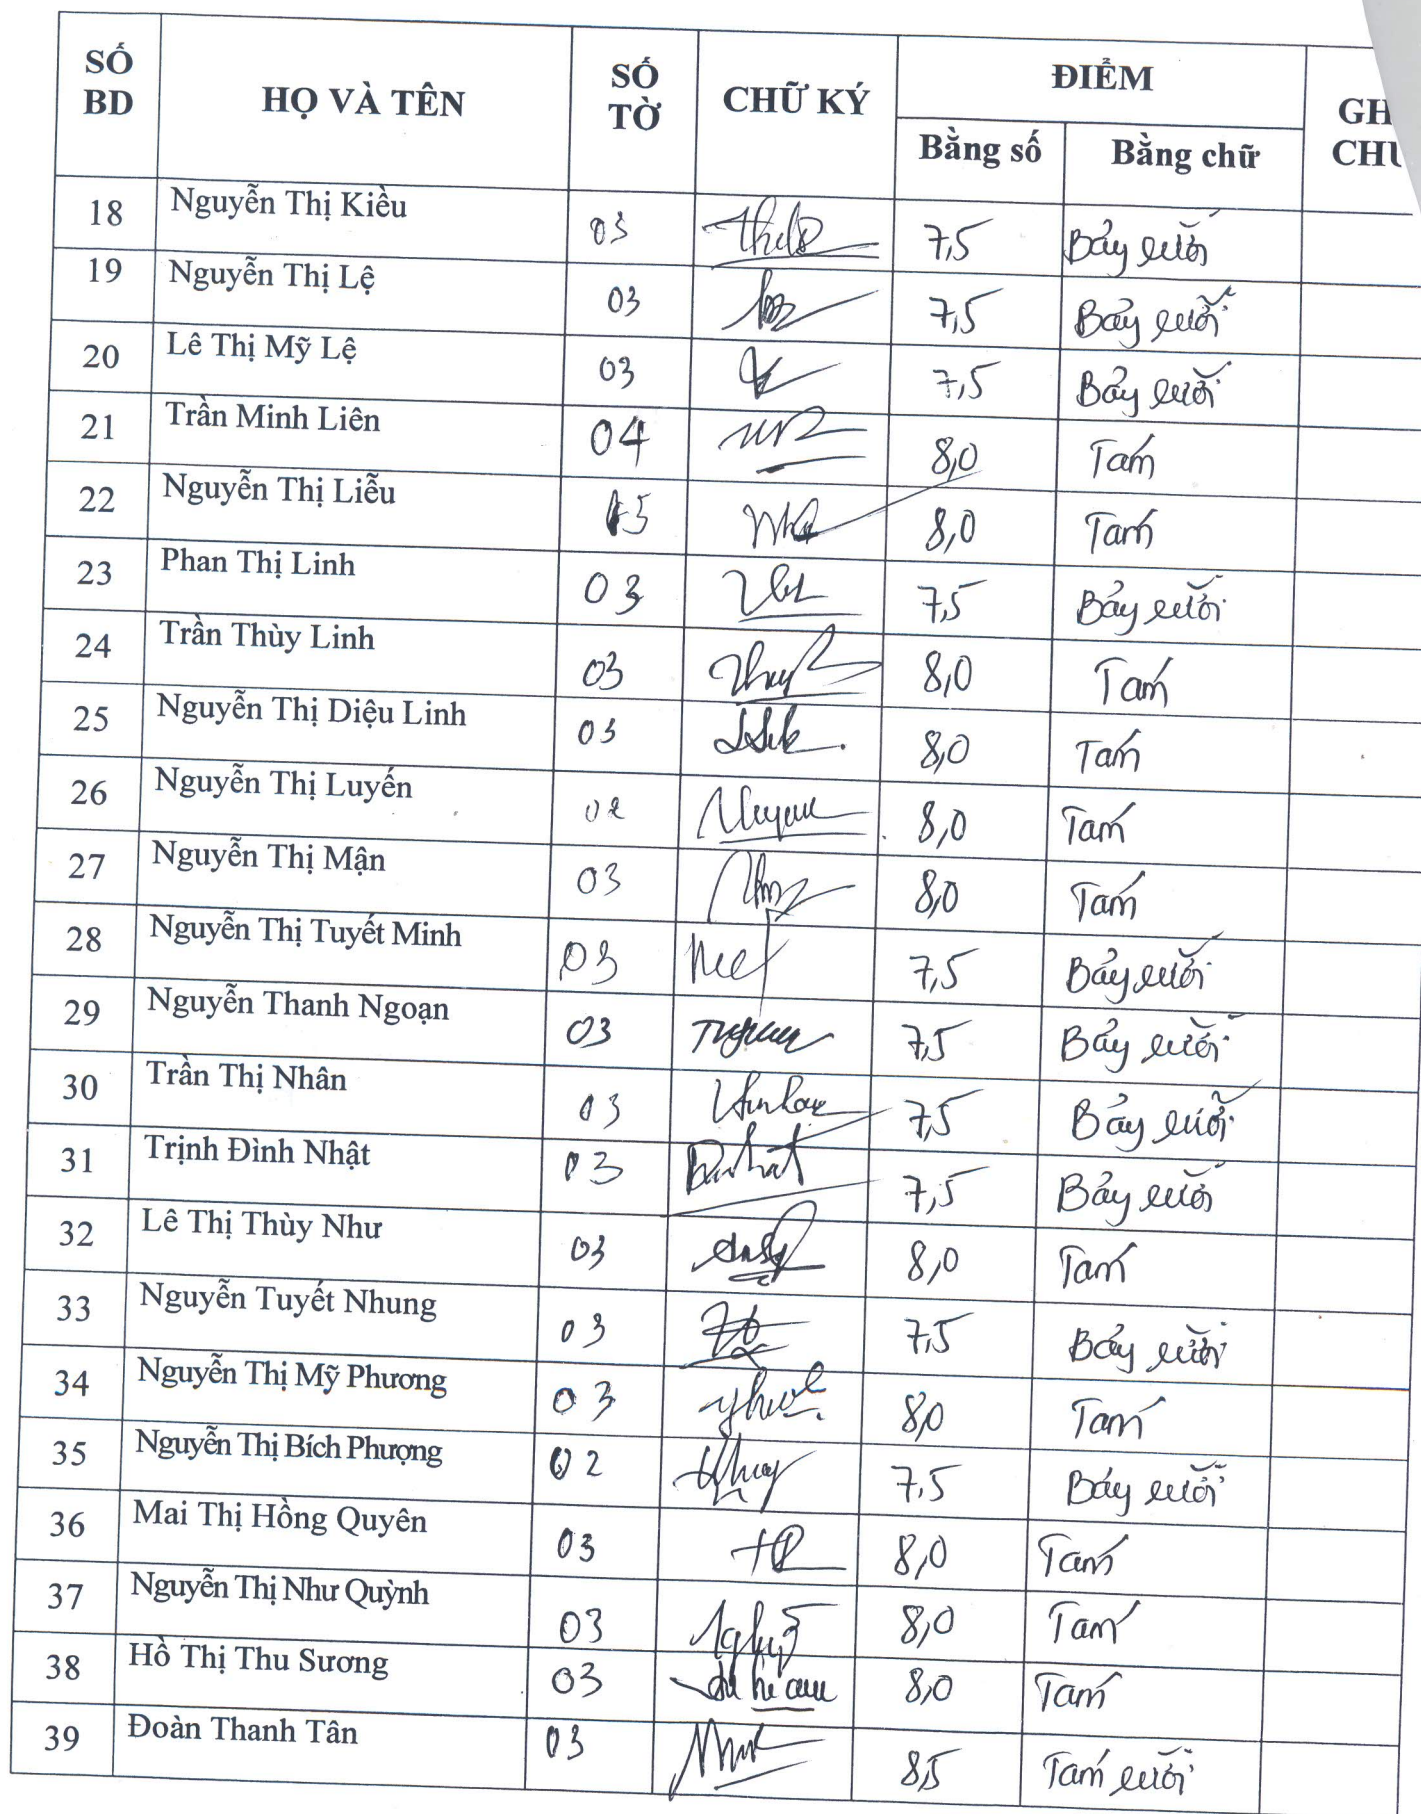 SỐ BD HỌ VÀ TÊN SỐ TỜ CHỮ KÝ ĐIỂM GH CHÚ
Bằng số Bằng chữ
18 Nguyễn Thị Kiều 03 7,5 Bảy rưỡi
19 Nguyễn Thị Lệ 03 7,5 Bảy rưỡi
20 Lê Thị Mỹ Lệ 03 7,5 Bảy rưỡi
21 Trần Minh Liên 04 8,0 Tám
22 Nguyễn Thị Liễu 8,0 Tám
23 Phan Thị Linh 03 7,5 Bảy rưỡi
24 Trần Thùy Linh 03 8,0 Tám
25 Nguyễn Thị Diệu Linh 03 8,0 Tám
26 Nguyễn Thị Luyến 02 8,0 Tám
27 Nguyễn Thị Mận 03 8,0 Tám
28 Nguyễn Thị Tuyết Minh 03 7,5 Bảy rưỡi
29 Nguyễn Thanh Ngoạn 03 7,5 Bảy rưỡi
30 Trần Thị Nhân 03 7,5 Bảy rưỡi
31 Trịnh Đình Nhật 03 7,5 Bảy rưỡi
32 Lê Thị Thùy Như 03 8,0 Tám
33 Nguyễn Tuyết Nhung 03 7,5 Bảy rưỡi
34 Nguyễn Thị Mỹ Phương 03 8,0 Tám
35 Nguyễn Thị Bích Phượng 02 7,5 Bảy rưỡi
36 Mai Thị Hồng Quyên 03 8,0 Tám
37 Nguyễn Thị Như Quỳnh 03 8,0 Tám
38 Hồ Thị Thu Sương 03 8,0 Tám
39 Đoàn Thanh Tân 03 8,5 Tám rưỡi